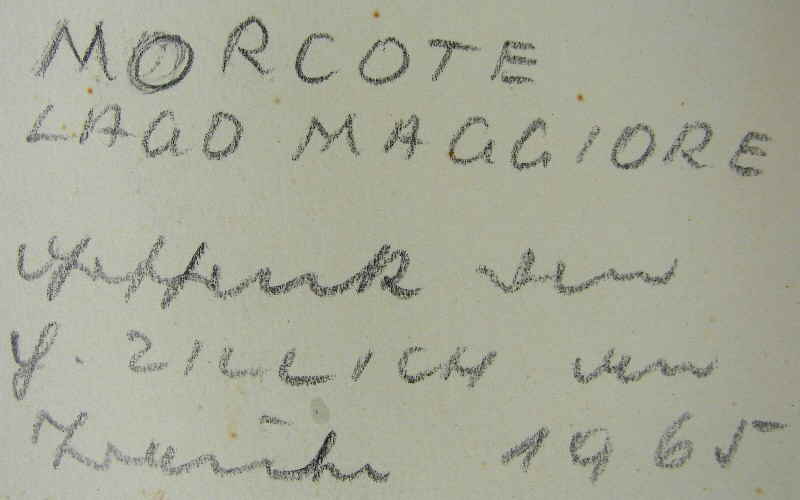 MORCOTE
LAGO MAGGIORE
Geschenk von
H. ZILLICH von
1965